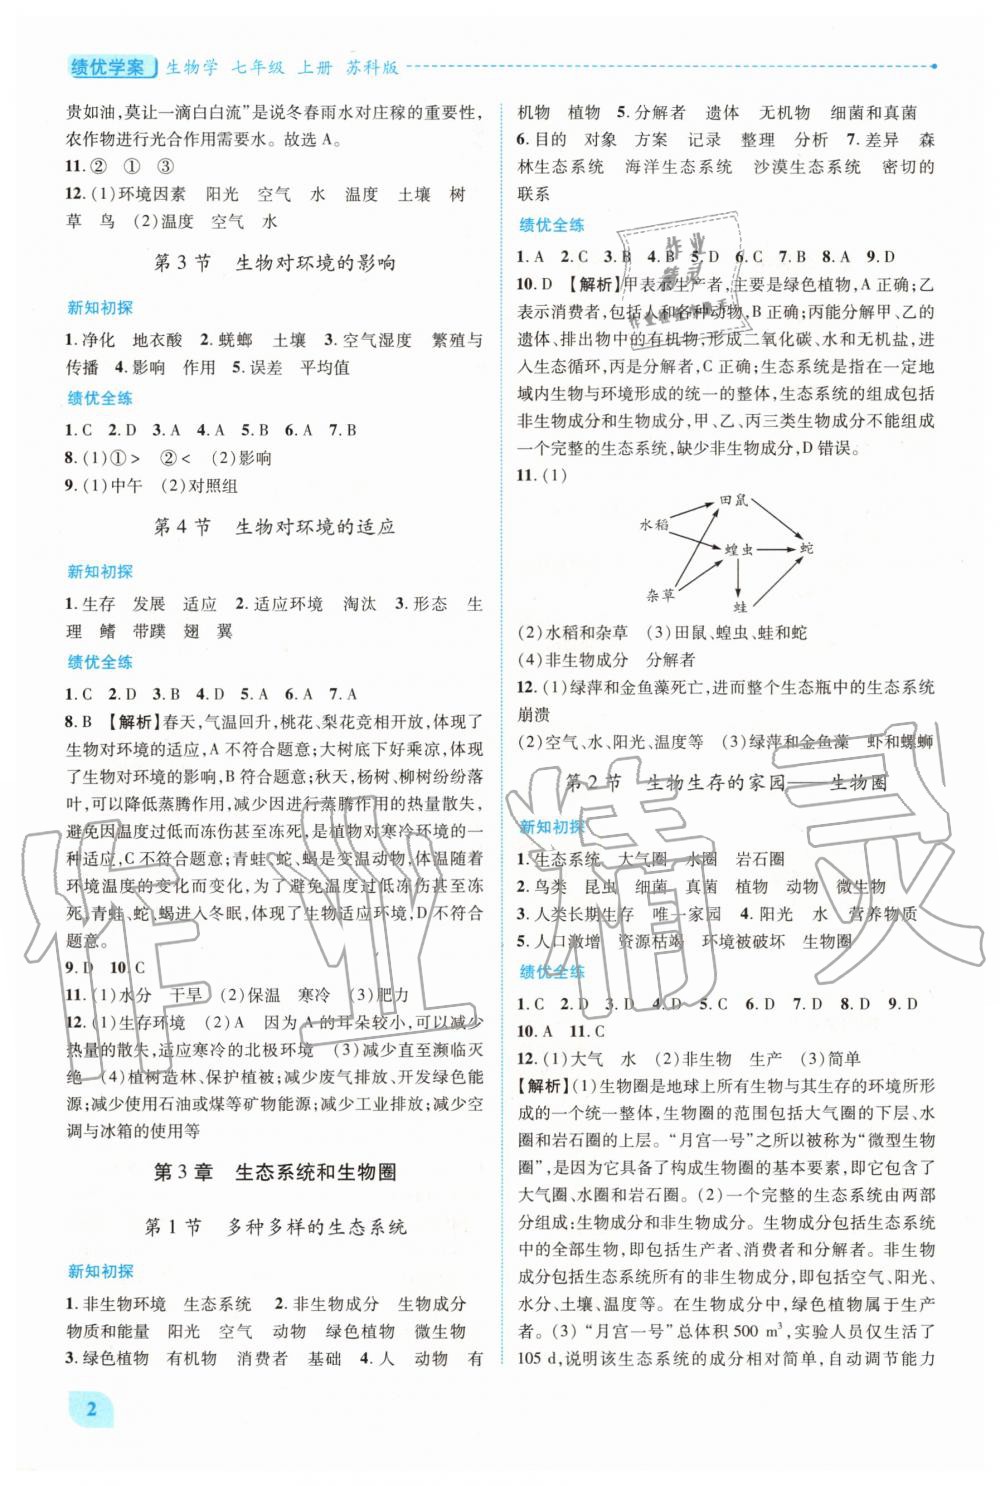 绩优学案 生物学 七年级 上册 苏科版
贵如油,莫让一滴白白流”是说冬春雨水对庄稼的重要性,
农作物进行光合作用需要水。故选A。
11.② ① ③
12.(1)环境因素 阳光 空气 水 温度 土壤 树
草 鸟 (2)温度 空气 水
第3节 生物对环境的影响
新知初探
1.净化 地衣酸 2.蜣螂 土壤 3.空气湿度 繁殖与
传播 4.影响 作用 5.误差 平均值
绩优全练
1.C 2.D 3.A 4.A 5.A 6.A 7.B
8.(1)①> ②< (2)影响
9.(1)中午 (2)对照组
第4节 生物对环境的适应
新知初探
1.生存 发展 适应 2.适应环境 淘汰 3.形态 生
理 鳍 带蹼 翅 翼
绩优全练
1.C 2.D 3.B 4.C 5.A 6.A 7.A
8.B 【解析】春天,气温回升,桃花、梨花竞相开放,体现了
生物对环境的适应,A不符合题意;大树底下好乘凉,体现
了生物对环境的影响,B符合题意;秋天,杨树、柳树纷纷落
叶,可以降低蒸腾作用,减少因进行蒸腾作用的热量散失,
避免因温度过低而冻伤甚至冻死,是植物对寒冷环境的一
种适应,C不符合题意;青蛙、蛇、蝎是变温动物,体温随着
环境温度的变化而变化,为避免因温度过低而冻伤甚至冻
死,青蛙、蛇、蝎进入冬眠,体现了生物适应环境,D不符合
题意。
9.D 10.C
11.(1)水分 干旱 (2)保温 寒冷 (3)肥力
12.(1)生存环境 (2)A 因为A的耳朵较小,可以减少
热量的散失,适应寒冷的北极环境 (3)减少直至濒临灭
绝 (4)植树造林、保护植被;减少废气排放、开发绿色能
源;减少使用石油或煤等矿物能源;减少工业排放;减少空
调与冰箱的使用等
第3章 生态系统和生物圈
第1节 多种多样的生态系统
新知初探
1.非生物环境 生态系统 2.非生物成分 生物成分
物质和能量 阳光 空气 动物 绿色植物 微生物
3.绿色植物 有机物 消费者 基础 4.人 动物 有
2
机物 植物 5.分解者 遗体 无机物 细菌和真菌
6.目的 对象 方案 记录 整理 分析 7.差异 森
林生态系统 海洋生态系统 沙漠生态系统 密切的
联系
绩优全练
1.A 2.C 3.B 4.B 5.D 6.C 7.B 8.A 9.D
10.D 【解析】甲表示生产者,主要是绿色植物,A正确;乙
表示消费者,包括人和各种动物,B正确;丙能分解甲、乙的
遗体、排出物中的有机物,形成二氧化碳、水和无机盐,进
入生态循环,丙是分解者,C正确;生态系统是指在一定地
域内生物与环境形成的统一的整体,生态系统的组成包括
非生物成分和生物成分,甲、乙、丙三类生物成分不能组成
一个完整的生态系统,缺少非生物成分,D错误。
11.(1)
田鼠
水稻
蝗虫 蛇
杂草
蛙
(2)水稻和杂草 (3)田鼠、蝗虫、蛙和蛇
(4)非生物成分 分解者
12.(1)绿萍和金鱼藻死亡,进而整个生态瓶中的生态系统
崩溃
(2)空气、水、阳光、温度等 (3)绿萍和金鱼藻 虾和螺蛳
第2节 生物生存的家园——生物圈
新知初探
1.生态系统 大气圈 水圈 岩石圈
2.鸟类 昆虫 细菌 真菌 植物 动物 微生物
3.人类长期生存 唯一家园 4.阳光 水 营养物质
5.人口激增 资源枯竭 环境被破坏 生物圈
绩优全练
1.C 2.D 3.D 4.D 5.C 6.C 7.D 8.D 9.D
10.A 11.C
12.(1)大气 水 (2)非生物 生产 (3)简单
【解析】(1)生物圈是地球上所有生物与其生存的环境所形
成的一个统一整体,生物圈的范围包括大气圈的下层、水
圈和岩石圈的上层。“月宫一号”之所以被称为“微型生物
圈”,是因为它具备了构成生物圈的基本要素,即它包含了
大气圈、水圈和岩石圈。(2)一个完整的生态系统由两部
分组成:生物成分和非生物成分。生物成分包括生态系统
中的全部生物,即包括生产者、消费者和分解者。非生物
成分包括生态系统所有的非生物成分,即包括空气、阳光、
水分、土壤、温度等。在生物成分中,绿色植物属于生产
者。(3)“月宫一号”总体积500 m³,实验人员仅生活了
105 d,说明该生态系统的成分相对简单,自动调节能力
作业精灵
作业精灵